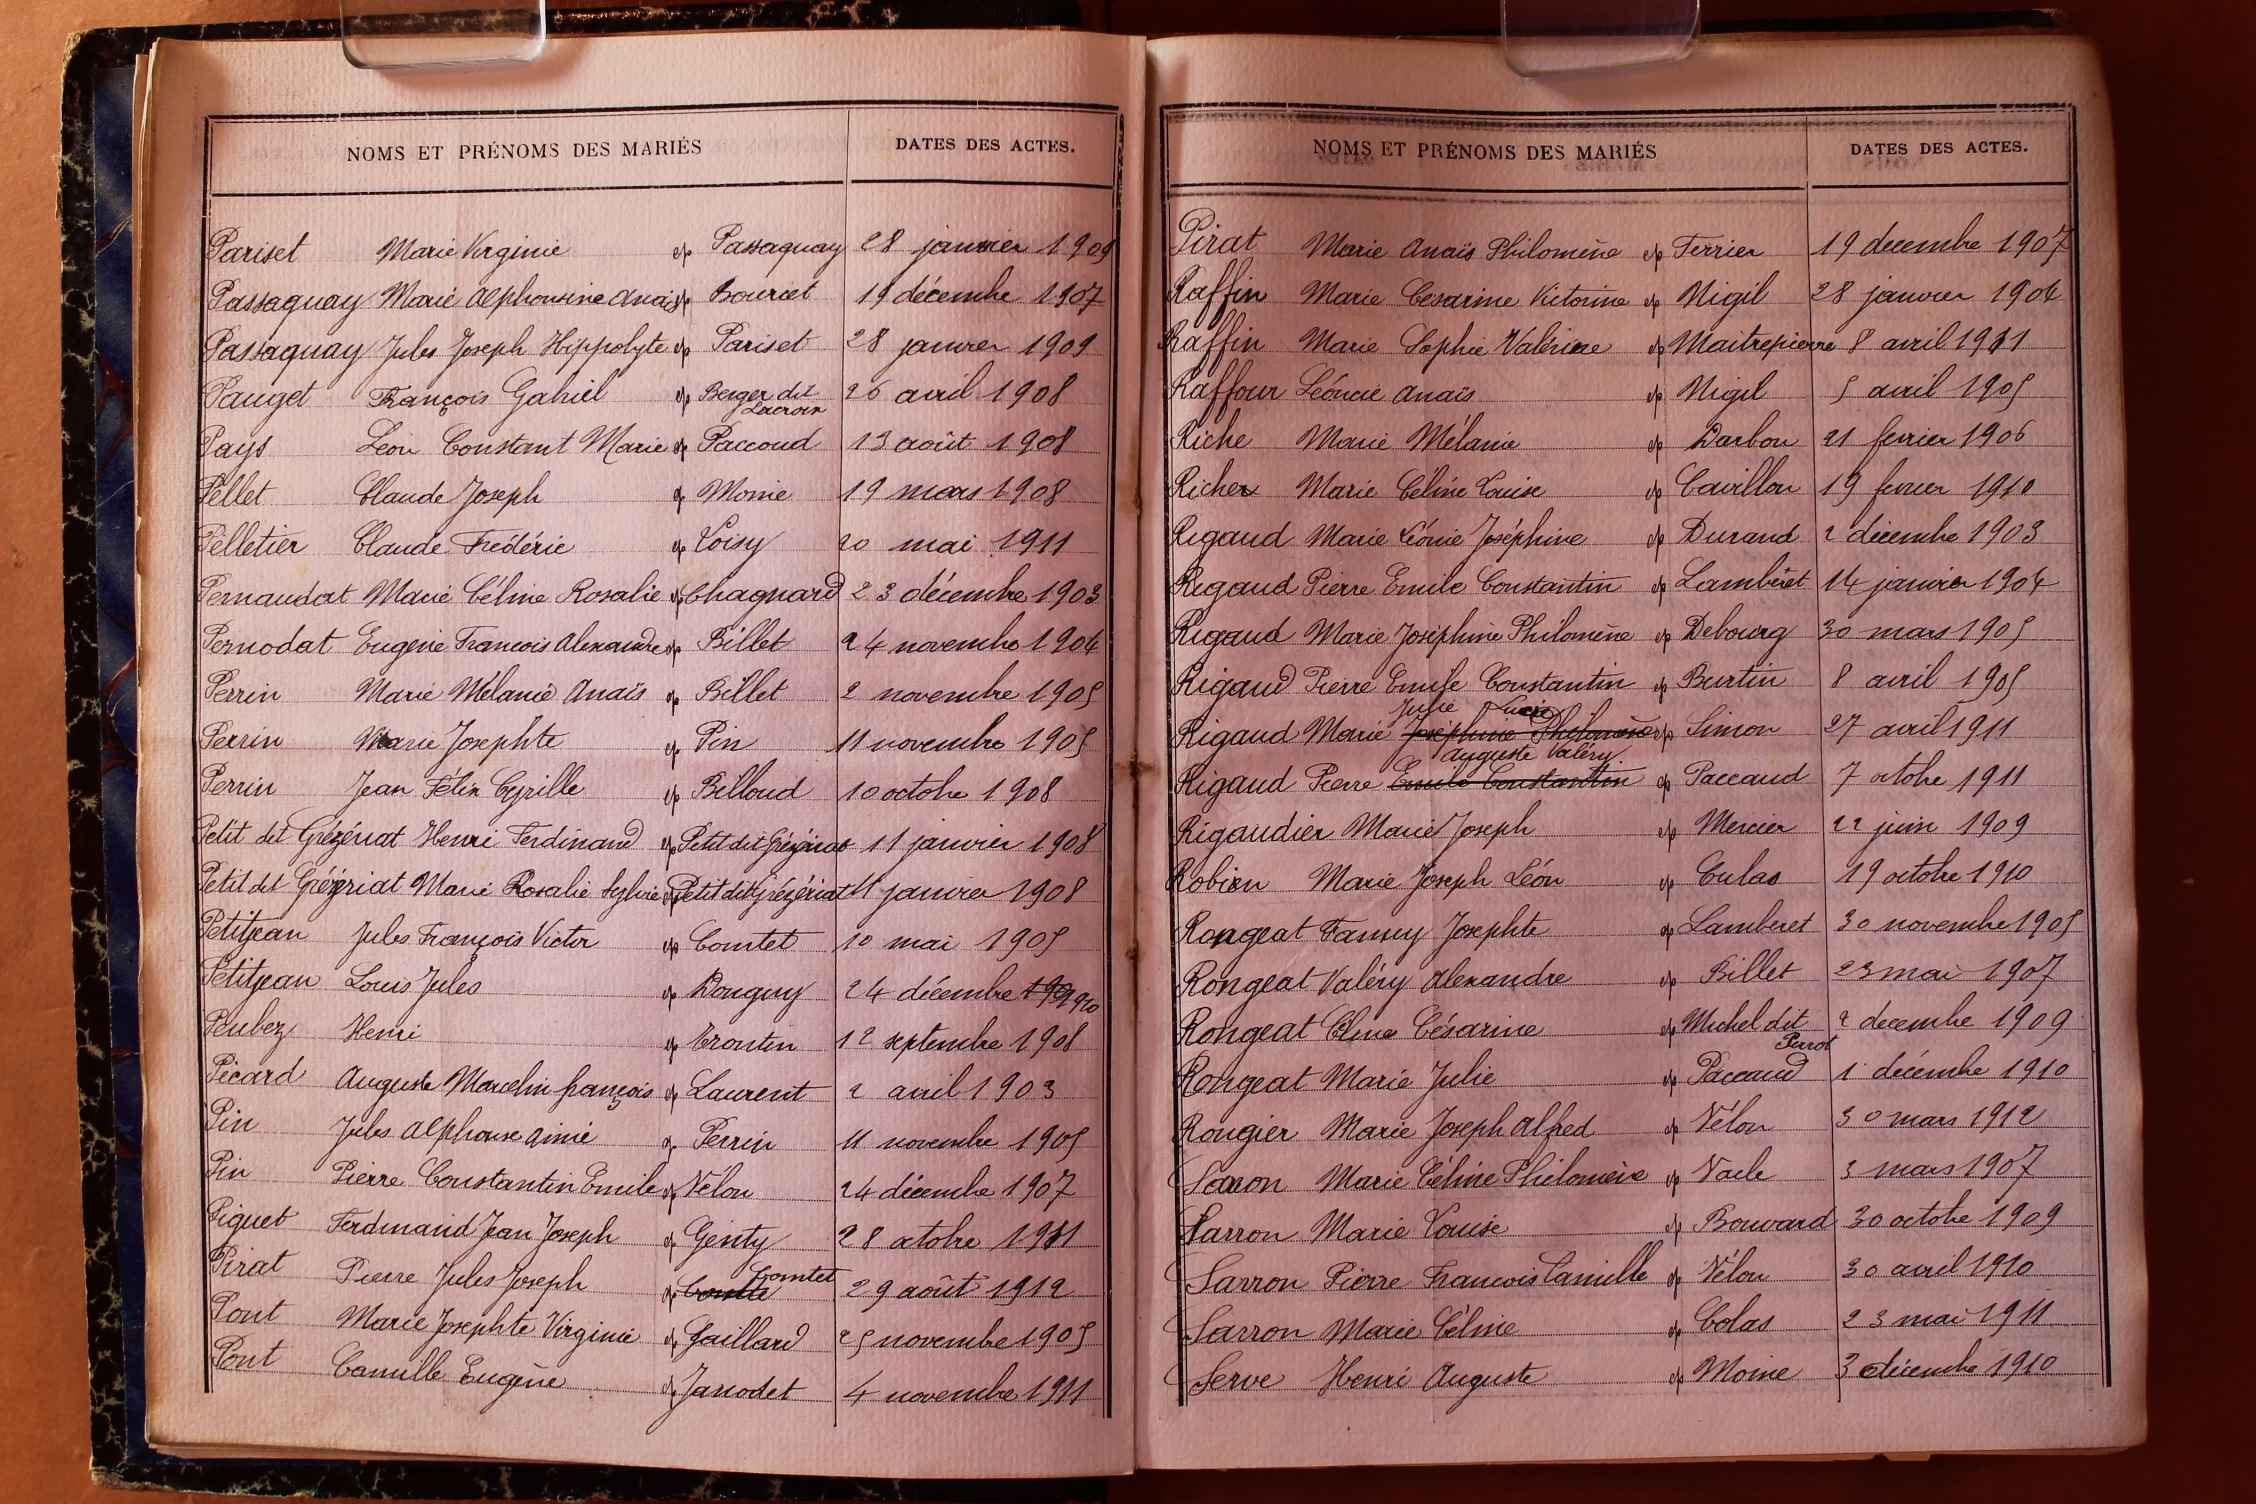 NOMS ET PRÉNOMS DES MARIÉS DATES DES ACTES.
Pariset Marie Virginie ép Passaquay 28 janvier 1909
Passaquay Marie Alphonsine Anaïs ép Bourcet 19 décembre 1907
Passaquay Jules Joseph Hippolyte ép Pariset 28 janvier 1909
Pauget François Gabriel ép Berger dit Lacroix 26 avril 1908
Pays Léon Constant Marie ép Paccoud 13 août 1908
Pellet Claude Joseph ép Monie 19 mars 1908
Pelletier Claude Frédéric ép Loisy 20 mai 1911
Pernaudat Marie Céline Rosalie ép Chagnard 23 décembre 1903
Pernodat Eugène François Alexandre ép Billet 24 novembre 1904
Perrin Marie Mélanie Anaïs ép Billet 2 novembre 1905
Perrin Marie Josephte ép Pin 11 novembre 1905
Perrin Jean Félix Cyrille ép Billoud 10 octobre 1908
Petit dit Grézériat Henri Ferdinand ép Petit dit Grézériat 11 janvier 1908
Petit dit Grézériat Marie Rosalie Sylvie ép Petit dit Grézériat 11 janvier 1908
Petitjean Jules François Victor ép Comtet 10 mai 1905
Petitjean Louis Jules ép Donguy 24 décembre 1910
Peubez Henri ép Trontin 12 septembre 1908
Picard Auguste Marcelin françois ép Laurent 2 avril 1903
Pin Jules Alphonse Aimé ép Perrin 11 novembre 1905
Pin Pierre Constantin Emile ép Vélon 24 décembre 1907
Piquet Ferdinand Jean Joseph ép Genty 28 octobre 1911
Pirat Pierre Jules Joseph ép Comte Comtet 29 août 1912
Pont Marie Josephte Virginie ép Gaillard 25 novembre 1905
Pont Camille Eugène ép Janodet 4 novembre 1911
NOMS ET PRÉNOMS DES MARIÉS DATES DES ACTES.
Pirat Marie Anaïs Philomène ép Ferrier 19 decembre 1907
Raffin Marie Cesarine Victorine ép Nigil 28 janvier 1904
Raffin Marie Sophie Valérine ép Maitrepierre 8 avril 1911
Raffour Léoncie Anaïs ép Nigil 5 avril 1905
Riche Marie Mélanie ép Darbon 21 fevrier 1906
Richer Marie Céline Louise ép Cavillon 19 fevrier 1910
Rigaud Marie Léonie Joséphine ép Durand 2 décembre 1903
Rigaud Pierre Emile Constantin ép Lambéret 14 janvier 1904
Rigaud Marie Joséphine Philomène ép Debourg 30 mars 1905
Rigaud Pierre Emile Constantin ép Burtin 8 avril 1905
Rigaud Marie Joséphine Philomène Julie Lucie ép Simon 27 avril 1911
Rigaud Pierre Emile Constantin Auguste Valéry ép Paccaud 7 octobre 1911
Rigaudier Marie Joseph ép Mercier 22 juin 1909
Robin Marie Joseph Léon ép Culas 19 octobre 1910
Rongeat Fanny Josephte ép Lamberet 30 novembre 1905
Rongeat Valéry Alexandre ép Billet 23 mai 1907
Rongeat Céline Césarine ép Michel dit Perrot 2 decembre 1909
Rongeat Marie Julie ép Paccaud 1 décembre 1910
Rougier Marie Joseph Alfred ép Vélon 30 mars 1912
Sarron Marie Céline Philomène ép Vacle 3 mars 1907
Sarron Marie Louise ép Bouvard 30 octobre 1909
Sarron Pierre François Camille ép Vélon 30 avril 1910
Sarron Marie Céline ép Colas 23 mai 1911
Serve Henri Auguste ép Moine 3 décembre 1910